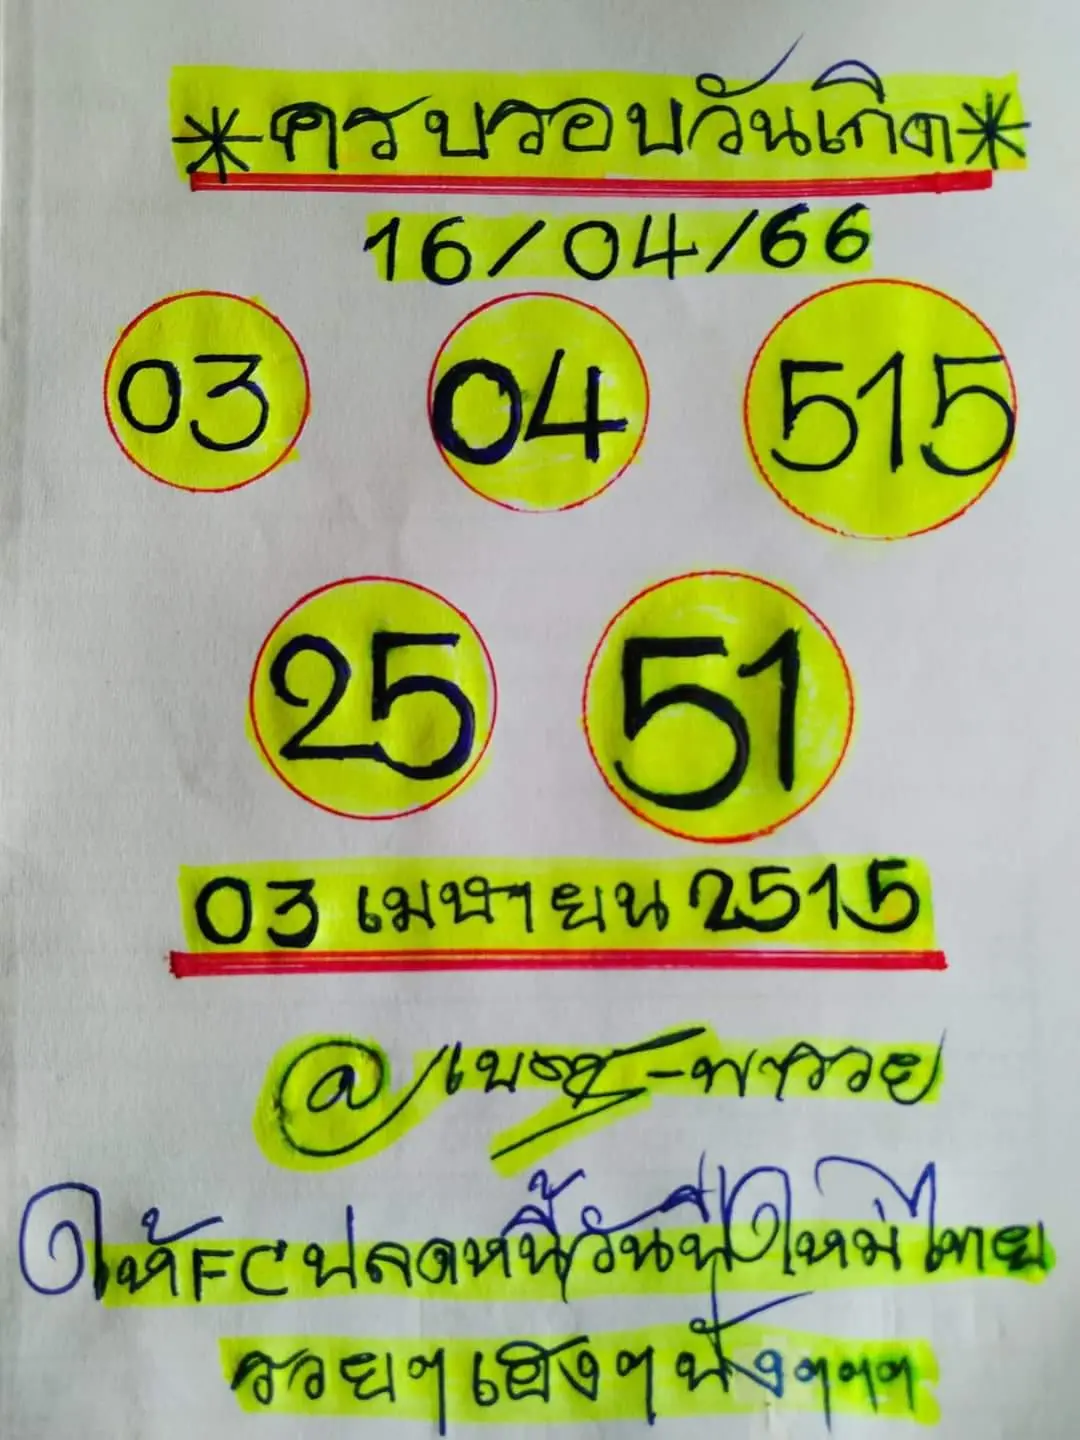 *ครบรอบวันเกิด*
16/04/66
03 04 515
25 51
03 เมษายน 2515
@เบนซ์-พารวย
ให้FCปลดหนี้วันปีใหม่ไทย
รวยๆเฮงๆปังๆๆๆ